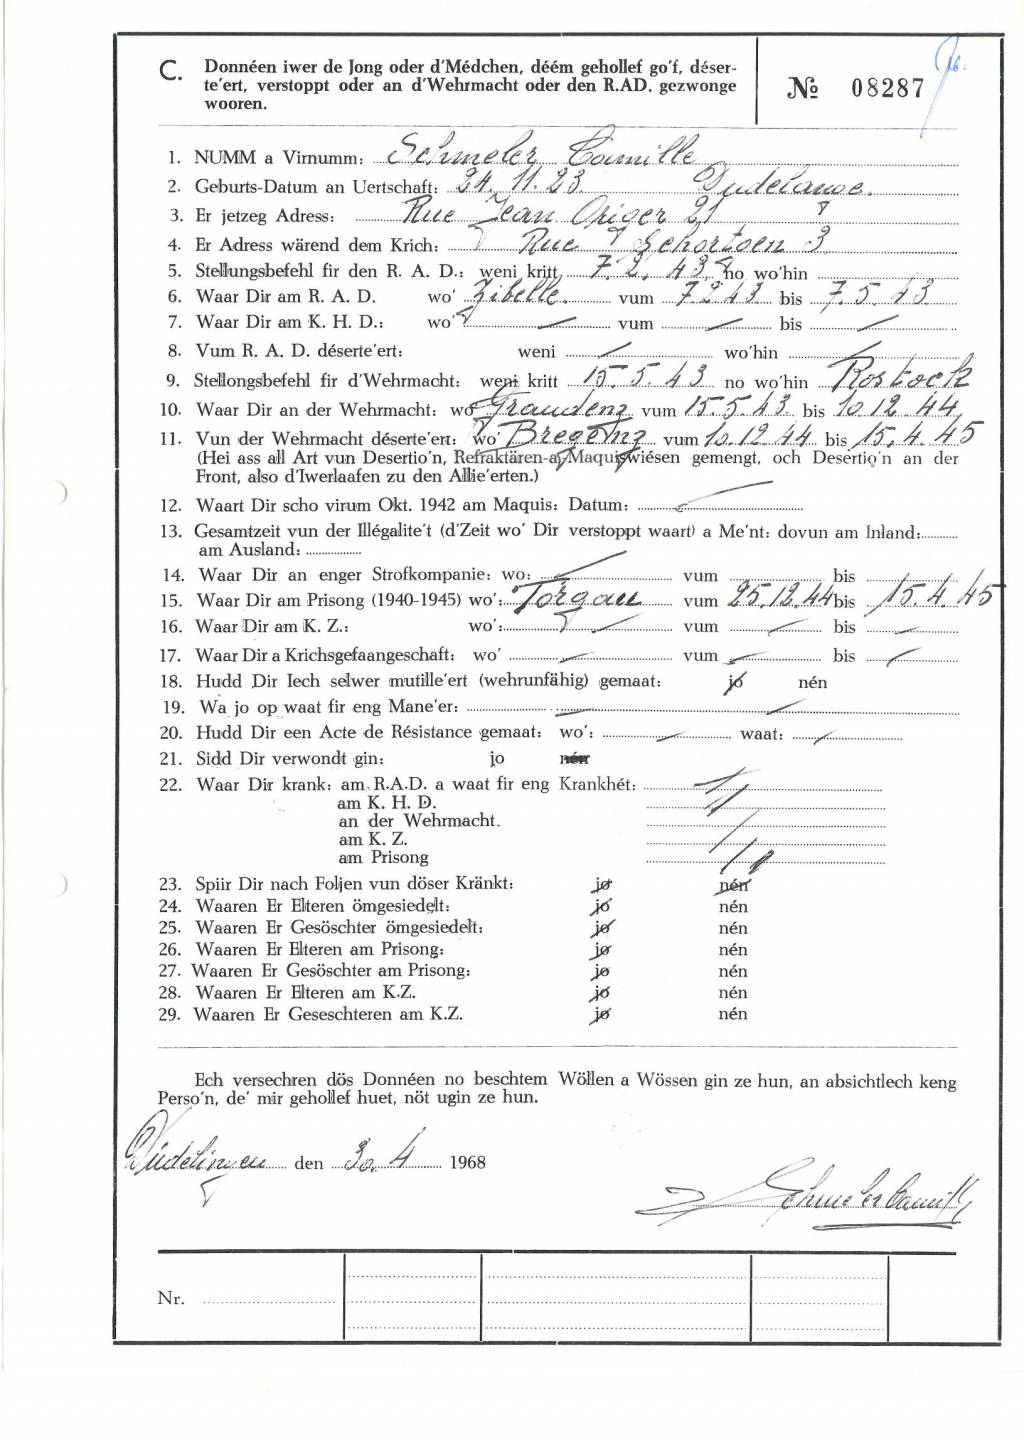 C. Donnéen iwer de Jong oder d'Médchen, déém gehollef go'f, déser-
te'ert, verstoppt oder an d'Wehrmacht oder den R.AD. gezwonge
wooren.
№ 08287
1. NUMM a Virnumm: Schmeler Camille
2. Geburts-Datum an Uertschaft: 24. 11. 23 Dudelange.
3. Er jetzeg Adress: Rue Jean Origer 21
4. Er Adress wärend dem Krich: Rue Schortgen 3
5. Stellungsbefehl fir den R. A. D.: weni kritt 7. 2. 43, no wo'hin
6. Waar Dir am R. A. D. wo' Zibelle. vum 7 2 43 bis 7. 5. 43
7. Waar Dir am K. H. D.: wo' — vum — bis —
8. Vum R. A. D. déserte'ert: weni — wo'hin —
9. Stellongsbefehl fir d'Wehrmacht: weni kritt 15. 5. 43 no wo'hin Rostock
10. Waar Dir an der Wehrmacht: wo' Graudenz vum 15. 5 43 bis 10. 12. 44
11. Vun der Wehrmacht déserte'ert: wo' Bregenz vum 10. 12 44 bis 15. 4. 45
(Hei ass all Art vun Desertio'n, Refraktären-a Maquiswiésen gemengt, och Desertio'n an der
Front, also d'Iwerlaafen zu den Allie'erten.)
12. Waart Dir scho virum Okt. 1942 am Maquis: Datum: —
13. Gesamtzeit vun der Illégalite't (d'Zeit wo' Dir verstoppt waart) a Me'nt: dovun am Inland:
am Ausland:
14. Waar Dir an enger Strofkompanie: wo: — vum bis
15. Waar Dir am Prisong (1940-1945) wo': Torgau vum 25. 12. 44 bis 15. 4. 45
16. Waar Dir am K. Z.: wo': — vum — bis —
17. Waar Dir a Krichsgefaangeschaft: wo' — vum — bis —
18. Hudd Dir Iech selwer mutille'ert (wehrunfähig) gemaat: jo nén
19. Wa jo op waat fir eng Mane'er: — —
20. Hudd Dir een Acte de Résistance gemaat: wo': — waat: —
21. Sidd Dir verwondt gin: jo nén
22. Waar Dir krank: am R.A.D. a waat fir eng Krankhét:
am K. H. D.
an der Wehrmacht.
am K. Z.
am Prisong
23. Spiir Dir nach Foljen vun döser Kränkt: jo nén
24. Waaren Er Elteren ömgesiedelt: jo nén
25. Waaren Er Gesöschter ömgesiedelt: jo nén
26. Waaren Er Elteren am Prisong: jo nén
27. Waaren Er Gesöschter am Prisong: jo nén
28. Waaren Er Elteren am K.Z. jo nén
29. Waaren Er Geseschteren am K.Z. jo nén
Ech versechren dös Donnéen no beschtem Wöllen a Wössen gin ze hun, an absichtlech keng
Perso'n, de' mir gehollef huet, nöt ugin ze hun.
Düdelingen den 30. 4 1968
Schmeler Camill
Nr.